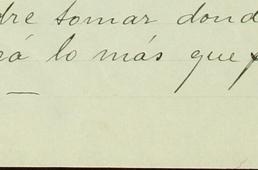 dre tomar dond
rá lo más que p